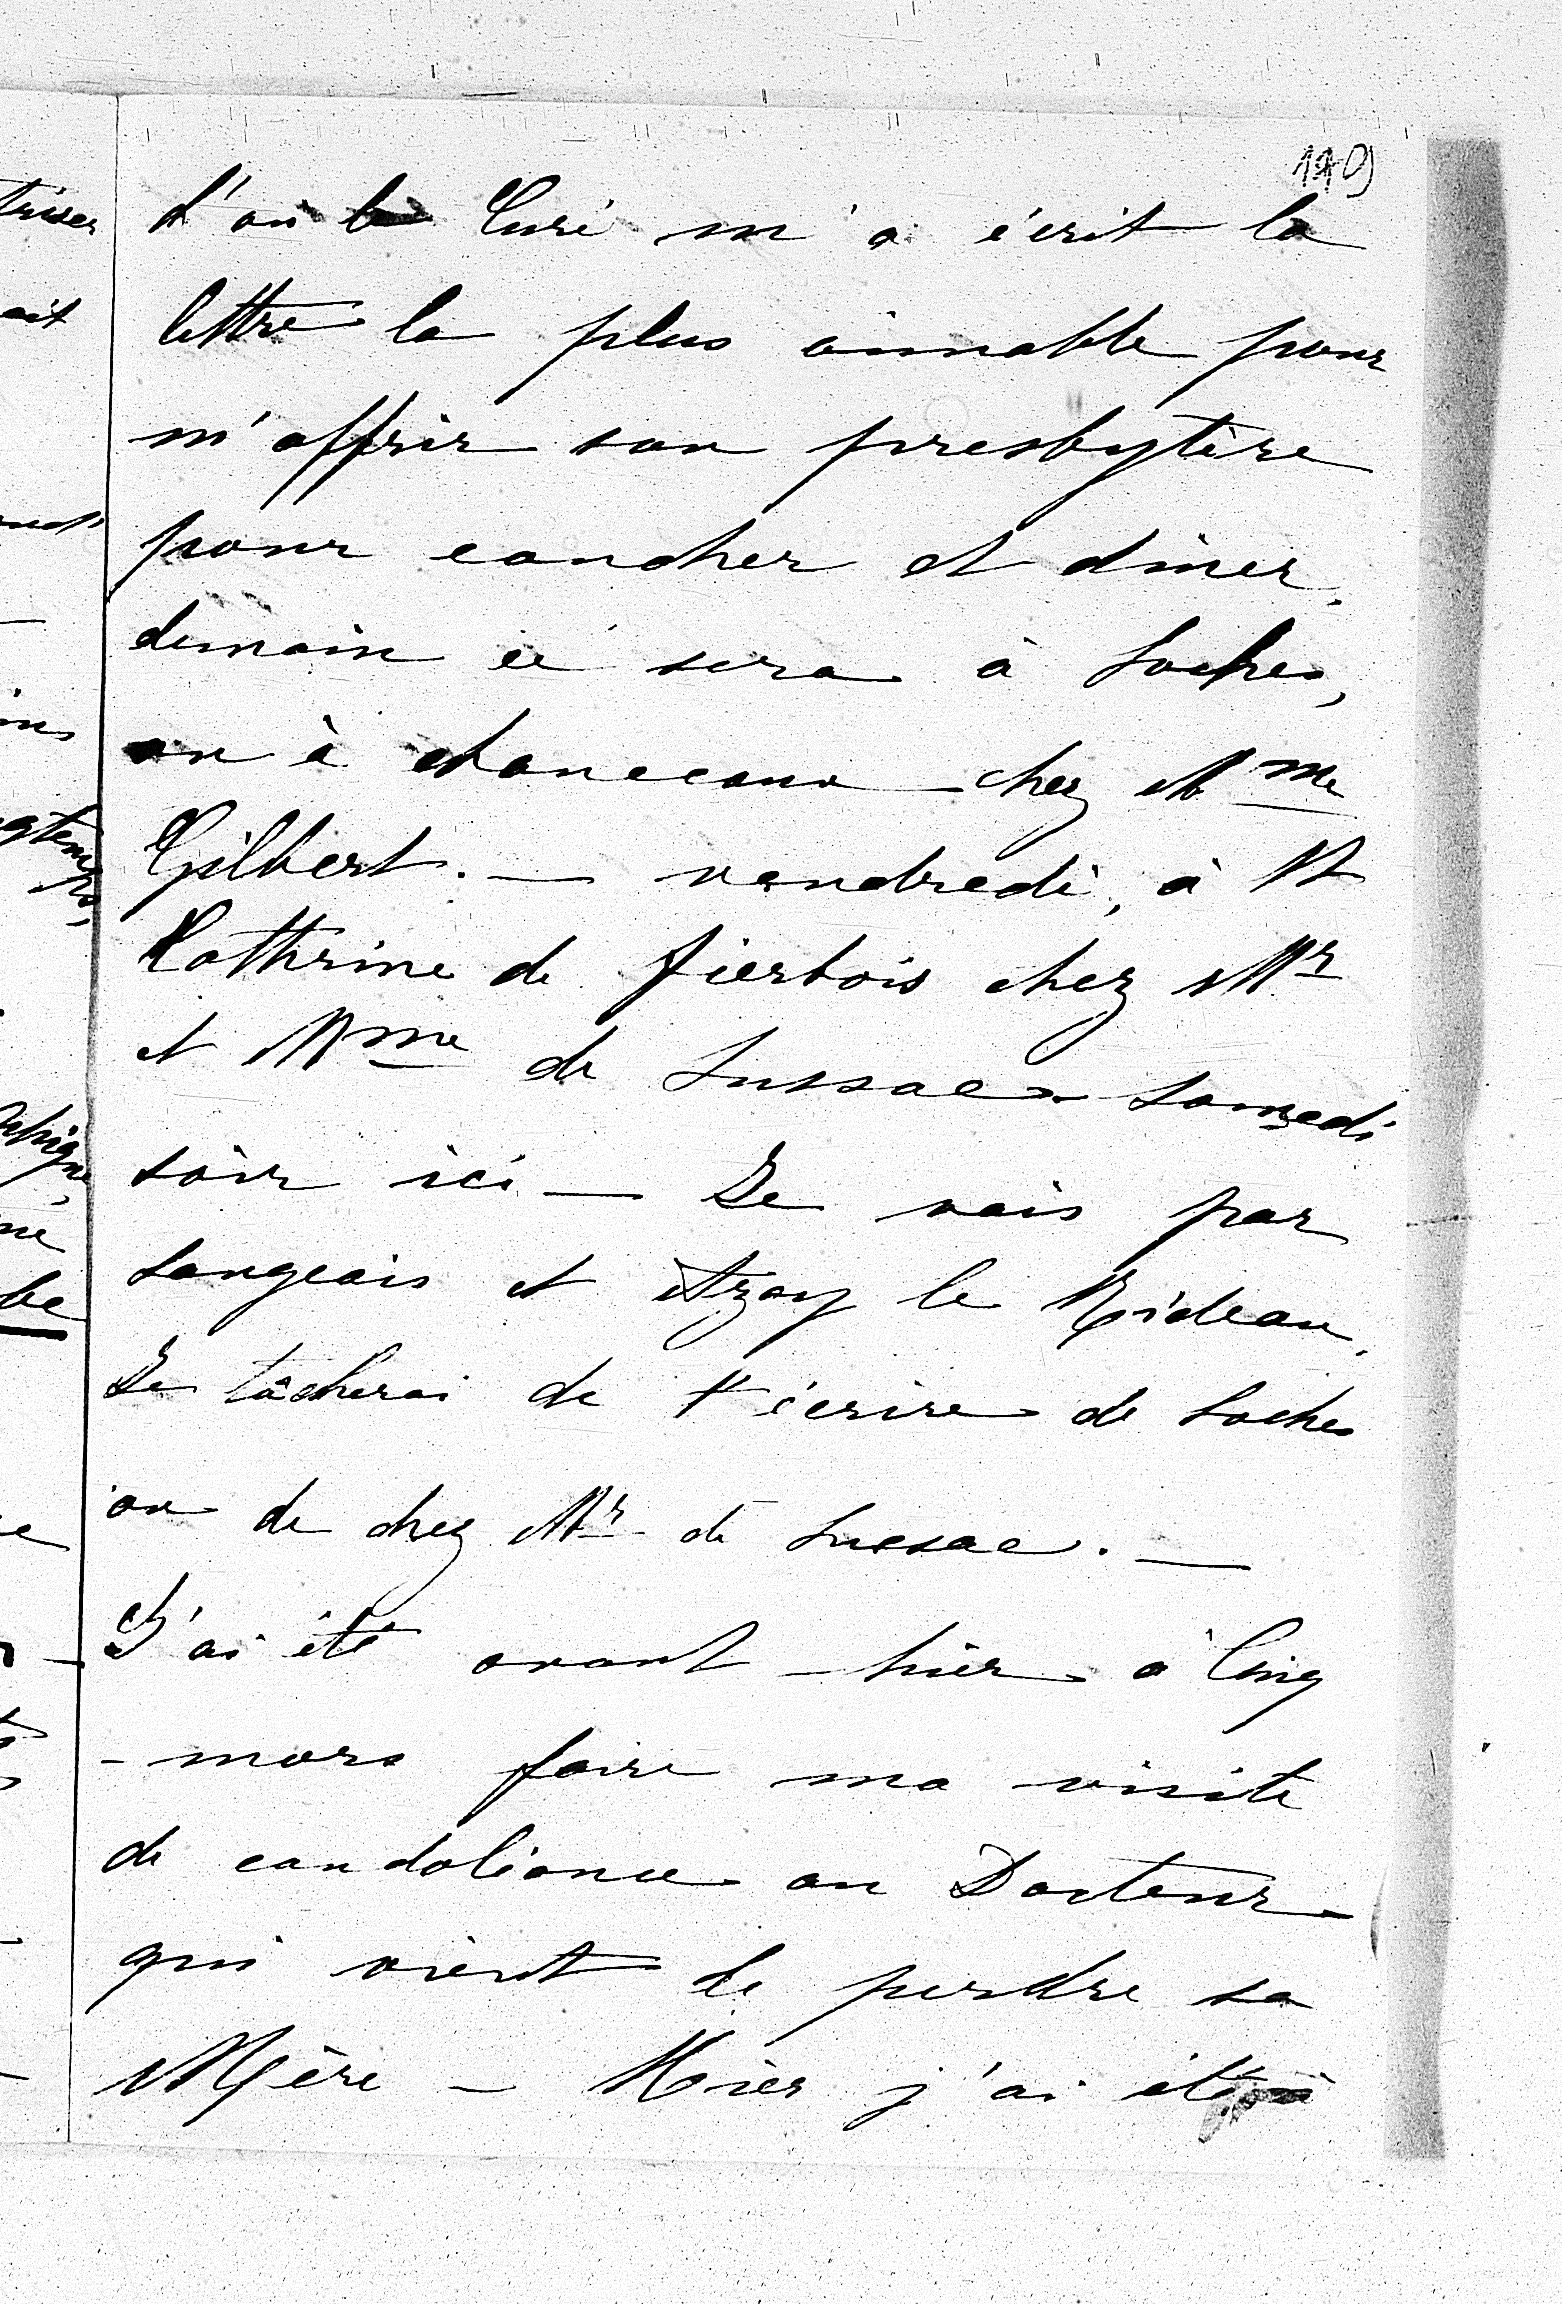 119
d'où le Curé m'a écrit la
lettre la plus aimable pour
m'offrir son presbytère
pour coucher et diner.
demain ce sera à Loches,
ou à chanceaux chez Mme
Gilbert. — vendredi, à St
Cathrine de fierbois chez Mr
et Mme de Lussac — Samedi
soir ici — Je vais par
Langeais et Azay le Rideau.
Je tâcherai de t'écrire de Loches
ou de chez Mr de Lussac. —
J'ai été avant-hier à Cinq
-mars faire ma visite
de condoléance au Docteur
qui vient de perdre sa
Mère — Hier j'ai été à